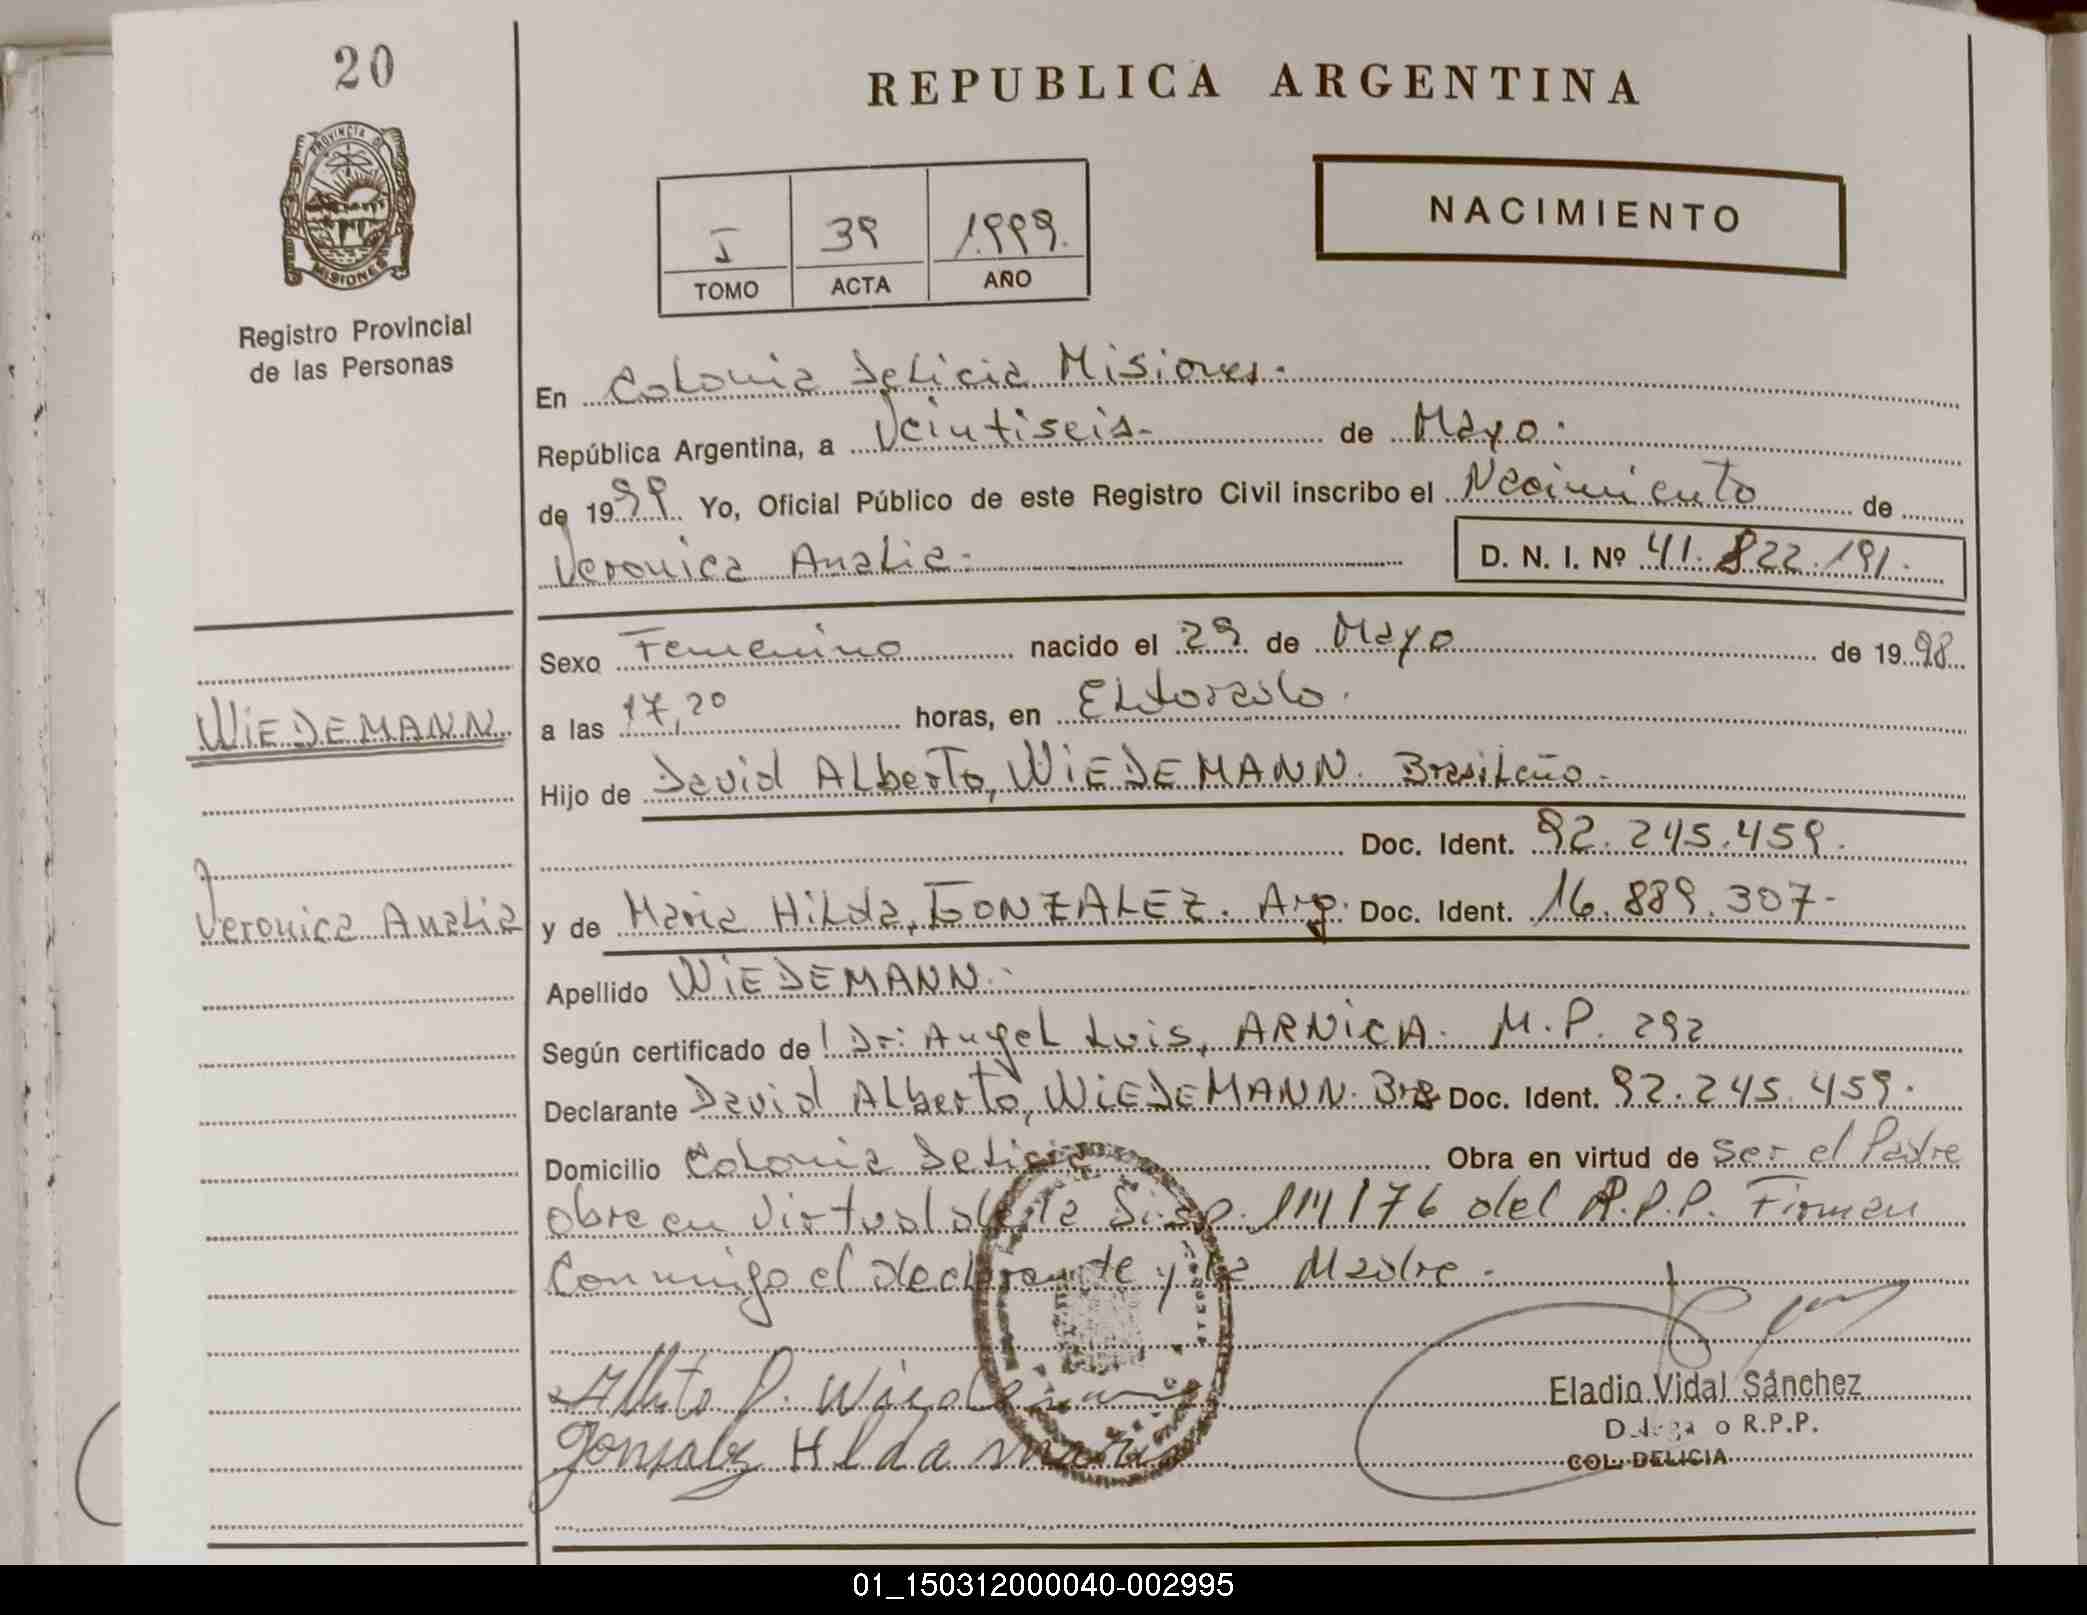 20
REPUBLICA ARGENTINA
PROVINCIA DE
MISIONES
Registro Provincial
de las Personas
I 39 1.999.
TOMO ACTA AÑO
NACIMIENTO
En Colonia Delicia Misiones.
República Argentina, a Veintiseis- de Mayo.
de 1999 Yo, Oficial Público de este Registro Civil inscribo el Nacimiento de
Veronica Analia.
D. N. I. Nº 41.822.191.
Sexo Femenino nacido el 29 de Mayo de 1998
a las 17,20 horas, en Eldorado.
WIEDEMANN
Hijo de David Alberto, WIEDEMANN. Brasileño.
Doc. Ident. 92.245.459.
Veronica Analia
y de Maria Hilda, GONZALEZ. Arg. Doc. Ident. 16.889.307-
Apellido WIEDEMANN.
Según certificado de Dr: Angel Luis, ARNICA. M.P. 292
Declarante David Alberto, WIEDEMANN. Bra Doc. Ident. 92.245.459.
Domicilio Colonia Delicia Obra en virtud de Ser el Padre
obra en virtud de la Disp. 111/76 del R.P.P. Firman
Conmigo el declarante y la Madre.
Alberto D. Wiedemann
Gonsalez Hlda maria
Eladio Vidal Sánchez
Delegado R.P.P.
COL. DELICIA
01_150312000040-002995